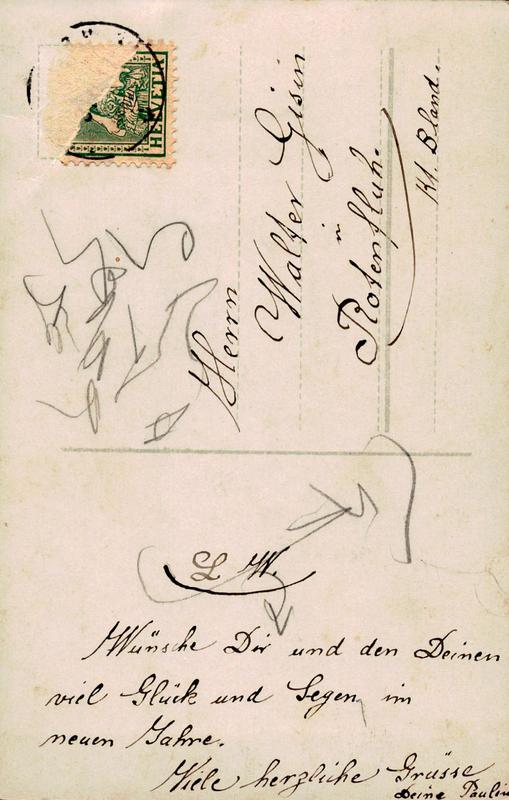 HELVETIA
Herrn
Walter Gisin
in
Rotenfluh.
Kt. Bland.
L W.
Wünsche Dir und den Deinen
viel Glück und Segen im
neuen Jahre.
Viele herzliche Grüsse
Deine Paulin